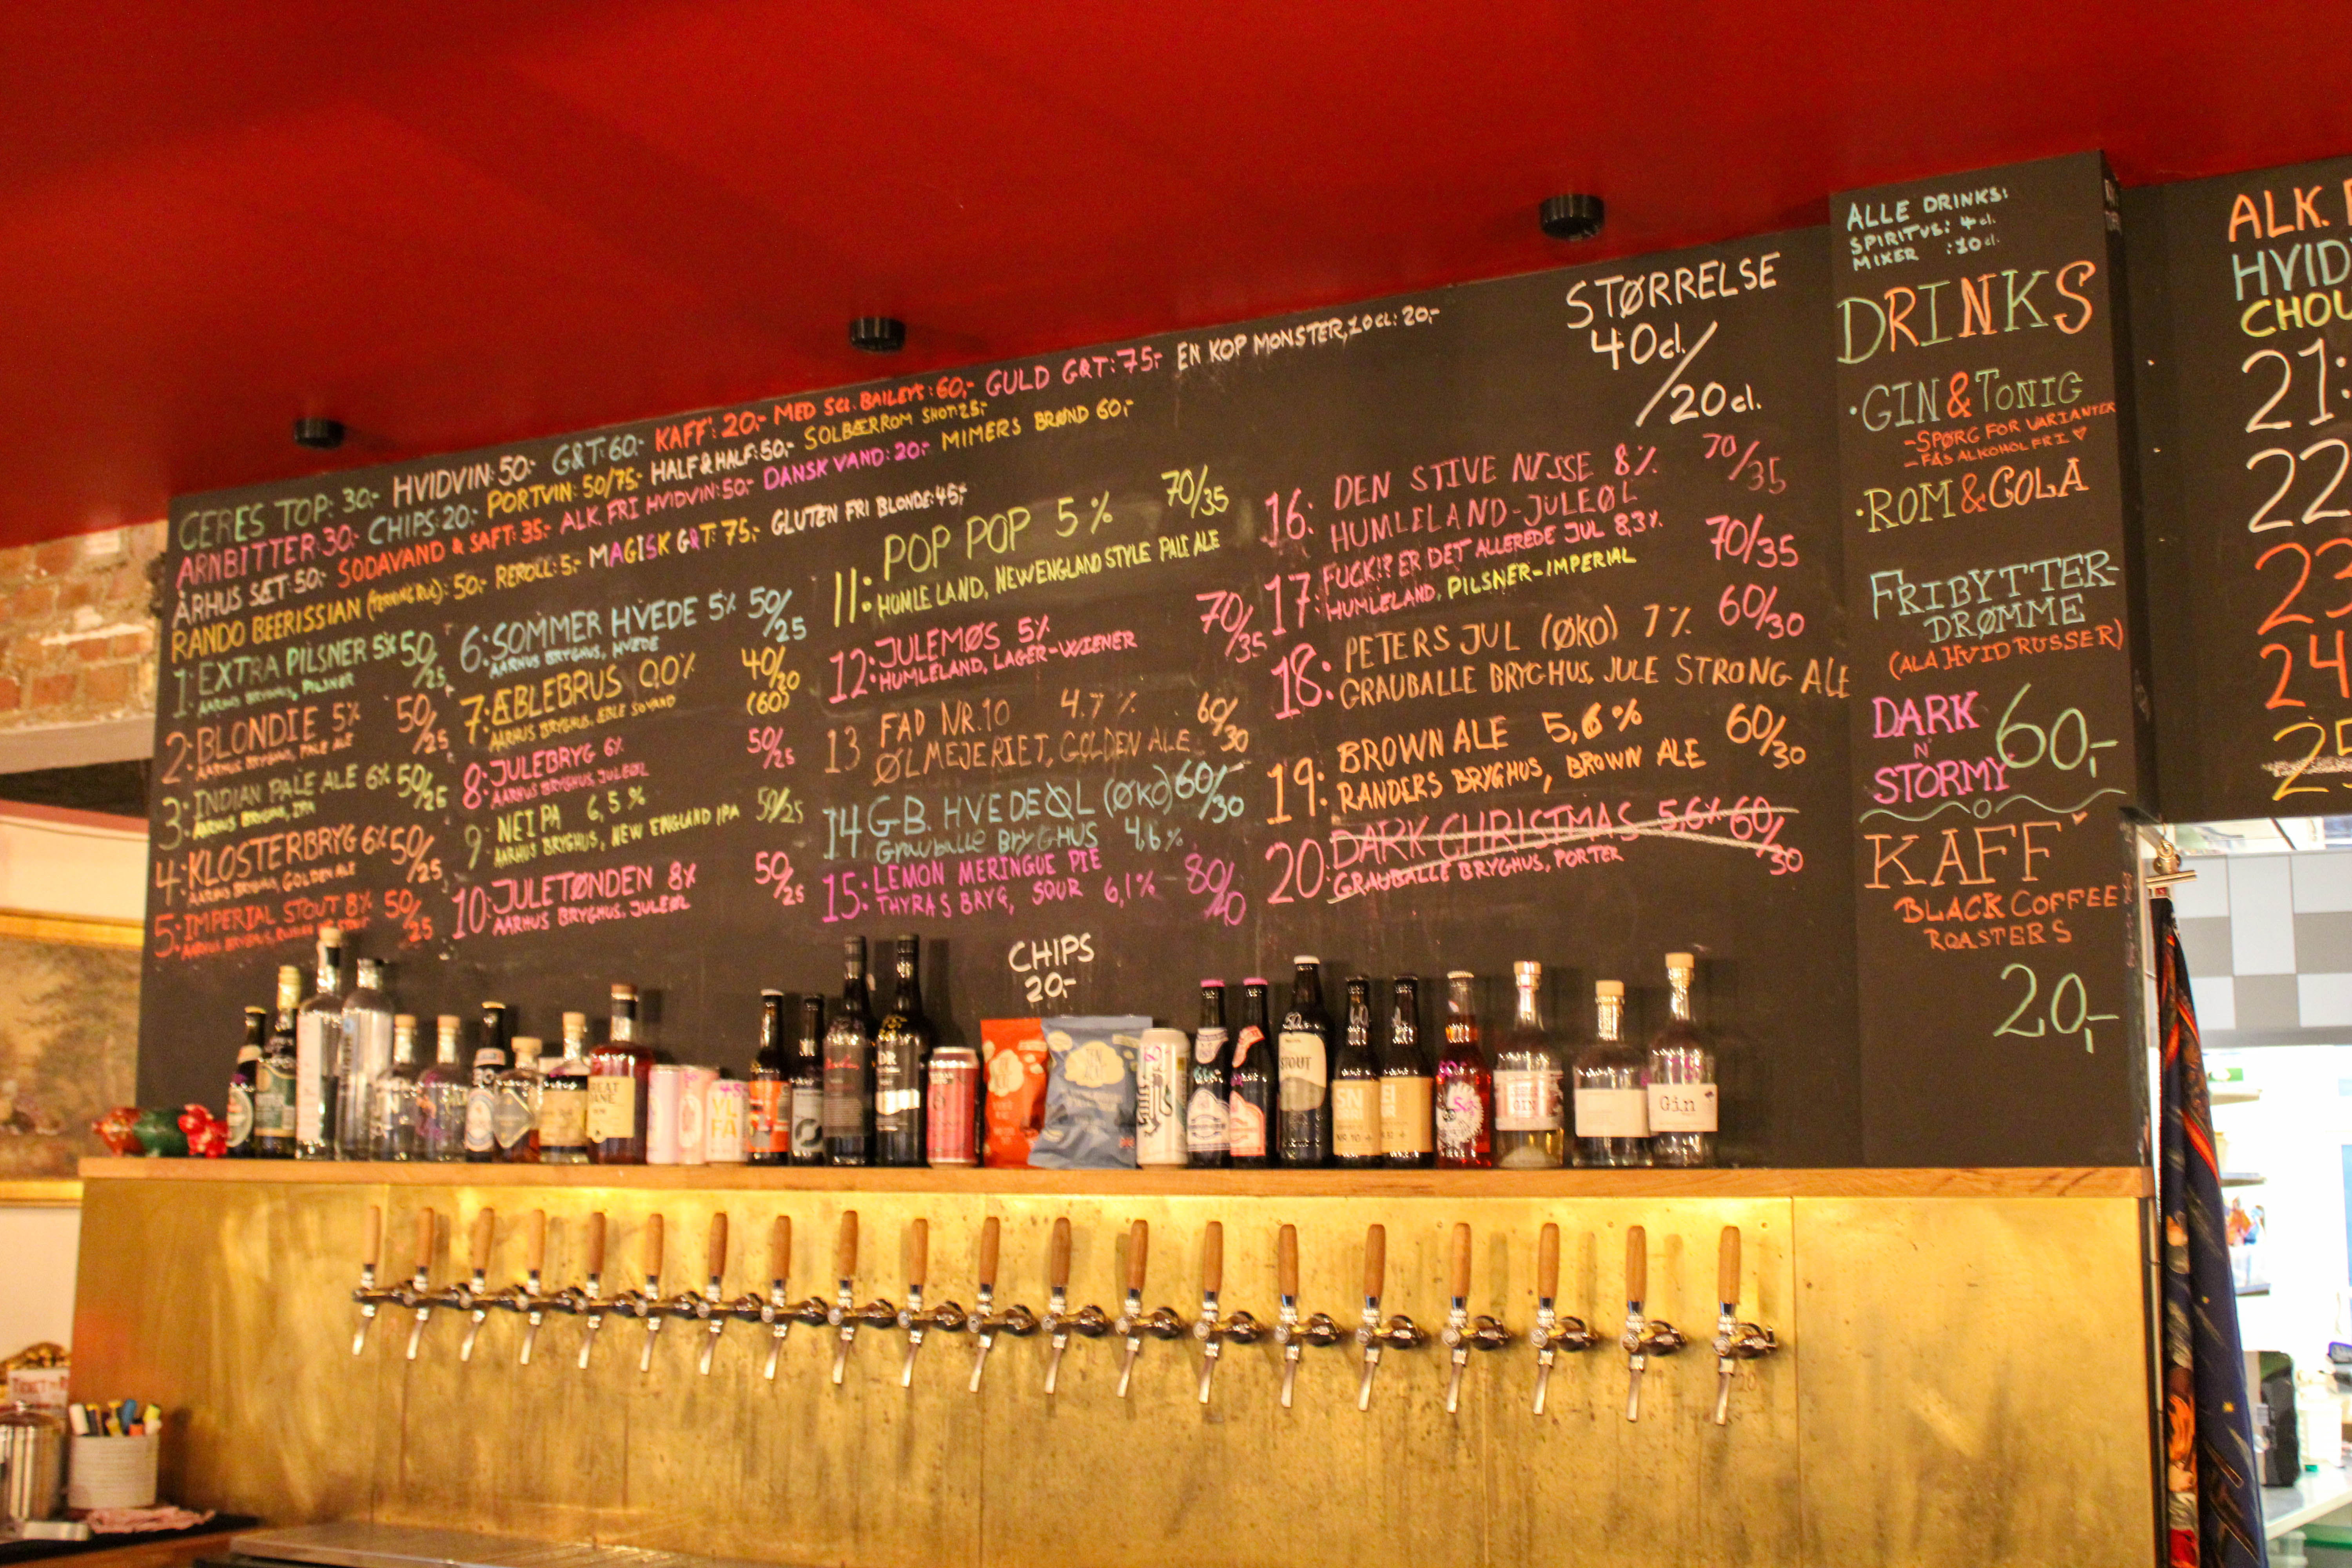 CERES TOP: 30,- HVIDVIN: 50,- G&T: 60,- KAFF': 20,- MED 5cl. BAILEYS: 60,- GULD G&T: 75,- EN KOP MONSTER, 10cl.: 20,-
ARNBITTER: 30,- CHIPS: 20,- PORTVIN: 50/75,- HALF & HALF: 50,- SOLBÆRROM SHOT: 25,-
ÅRHUS SÆT: 50,- SODAVAND & SAFT: 35,- ALK. FRI HVIDVIN: 50,- DANSK VAND: 20,- MIMERS BRØND 60,-
RANDO BEERISSIAN 50,- REROLL: 5,- MAGISK G&T: 75,- GLUTEN FRI BLONDE: 45,-
1: EXTRA PILSNER 5% 50/25
AARHUS BRYGHUS, PILSNER
2: BLONDIE 5% 50/25
AARHUS BRYGHUS, PALE ALE
3: INDIAN PALE ALE 6% 50/25
AARHUS BRYGHUS, IPA
4: KLOSTERBRYG 6% 50/25
AARHUS BRYGHUS, GOLDEN ALE
5: IMPERIAL STOUT 8% 50/25
AARHUS BRYGHUS,
6: SOMMER HVEDE 5% 50/25
AARHUS BRYGHUS, HVEDE
7: ÆBLEBRUS 0,0% 40/20
AARHUS BRYGHUS, ÆBLE SOVAND (60)
8: JULEBRYG 6% 50/25
AARHUS BRYGHUS, JULEØL
9: NEIPA 6,5% 50/25
AARHUS BRYGHUS, NEW ENGLAND IPA
10: JULETØNDEN 8% 50/25
AARHUS BRYGHUS, JULEØL
11: POP POP 5% 70/35
HUMLELAND, NEW ENGLAND STYLE PALE ALE
12: JULEMØS 5% 70/35
HUMLELAND, LAGER-WIENER
13 FAD NR. 10 4.7% 60/30
ØLMEJERIET, GOLDEN ALE
14 G.B. HVEDEØL (ØKO) 60/30
Grauballe BRYGHUS 4,6%
15: LEMON MERINGUE PIE 80/40
THYRAS BRYG, SOUR 6,1%
STØRRELSE
40cl. / 20cl.
16: DEN STIVE NISSE 8% 70/35
HUMLELAND-JULEØL
17: FUCK!? ER DET ALLEREDE JUL 8,3% 70/35
HUMLELAND, PILSNER-IMPERIAL
18: PETERS JUL (ØKO) 7% 60/30
GRAUBALLE BRYGHUS, JULE STRONG ALE
19: BROWN ALE 5,6% 60/30
RANDERS BRYGHUS, BROWN ALE
20: DARK CHRISTMAS 5,6% 60/30
GRAUBALLE BRYGHUS, PORTER
CHIPS
20,-
ALLE DRINKS:
SPIRITUS: 4 cl.
MIXER : 10 cl.
DRINKS
·GIN & TONIC
-SPØRG FOR VARIANTER
-FÅS ALKOHOLFRI ♡
·ROM & COLA
FRIBYTTER-
DRØMME
(ALA HVID RUSSER)
DARK
N'
STORMY 60,-
KAFF'
BLACK COFFEE
ROASTERS
20,-
ALK.
HVID
CHOU
21:
22
23
24
25
STOUT
Gin